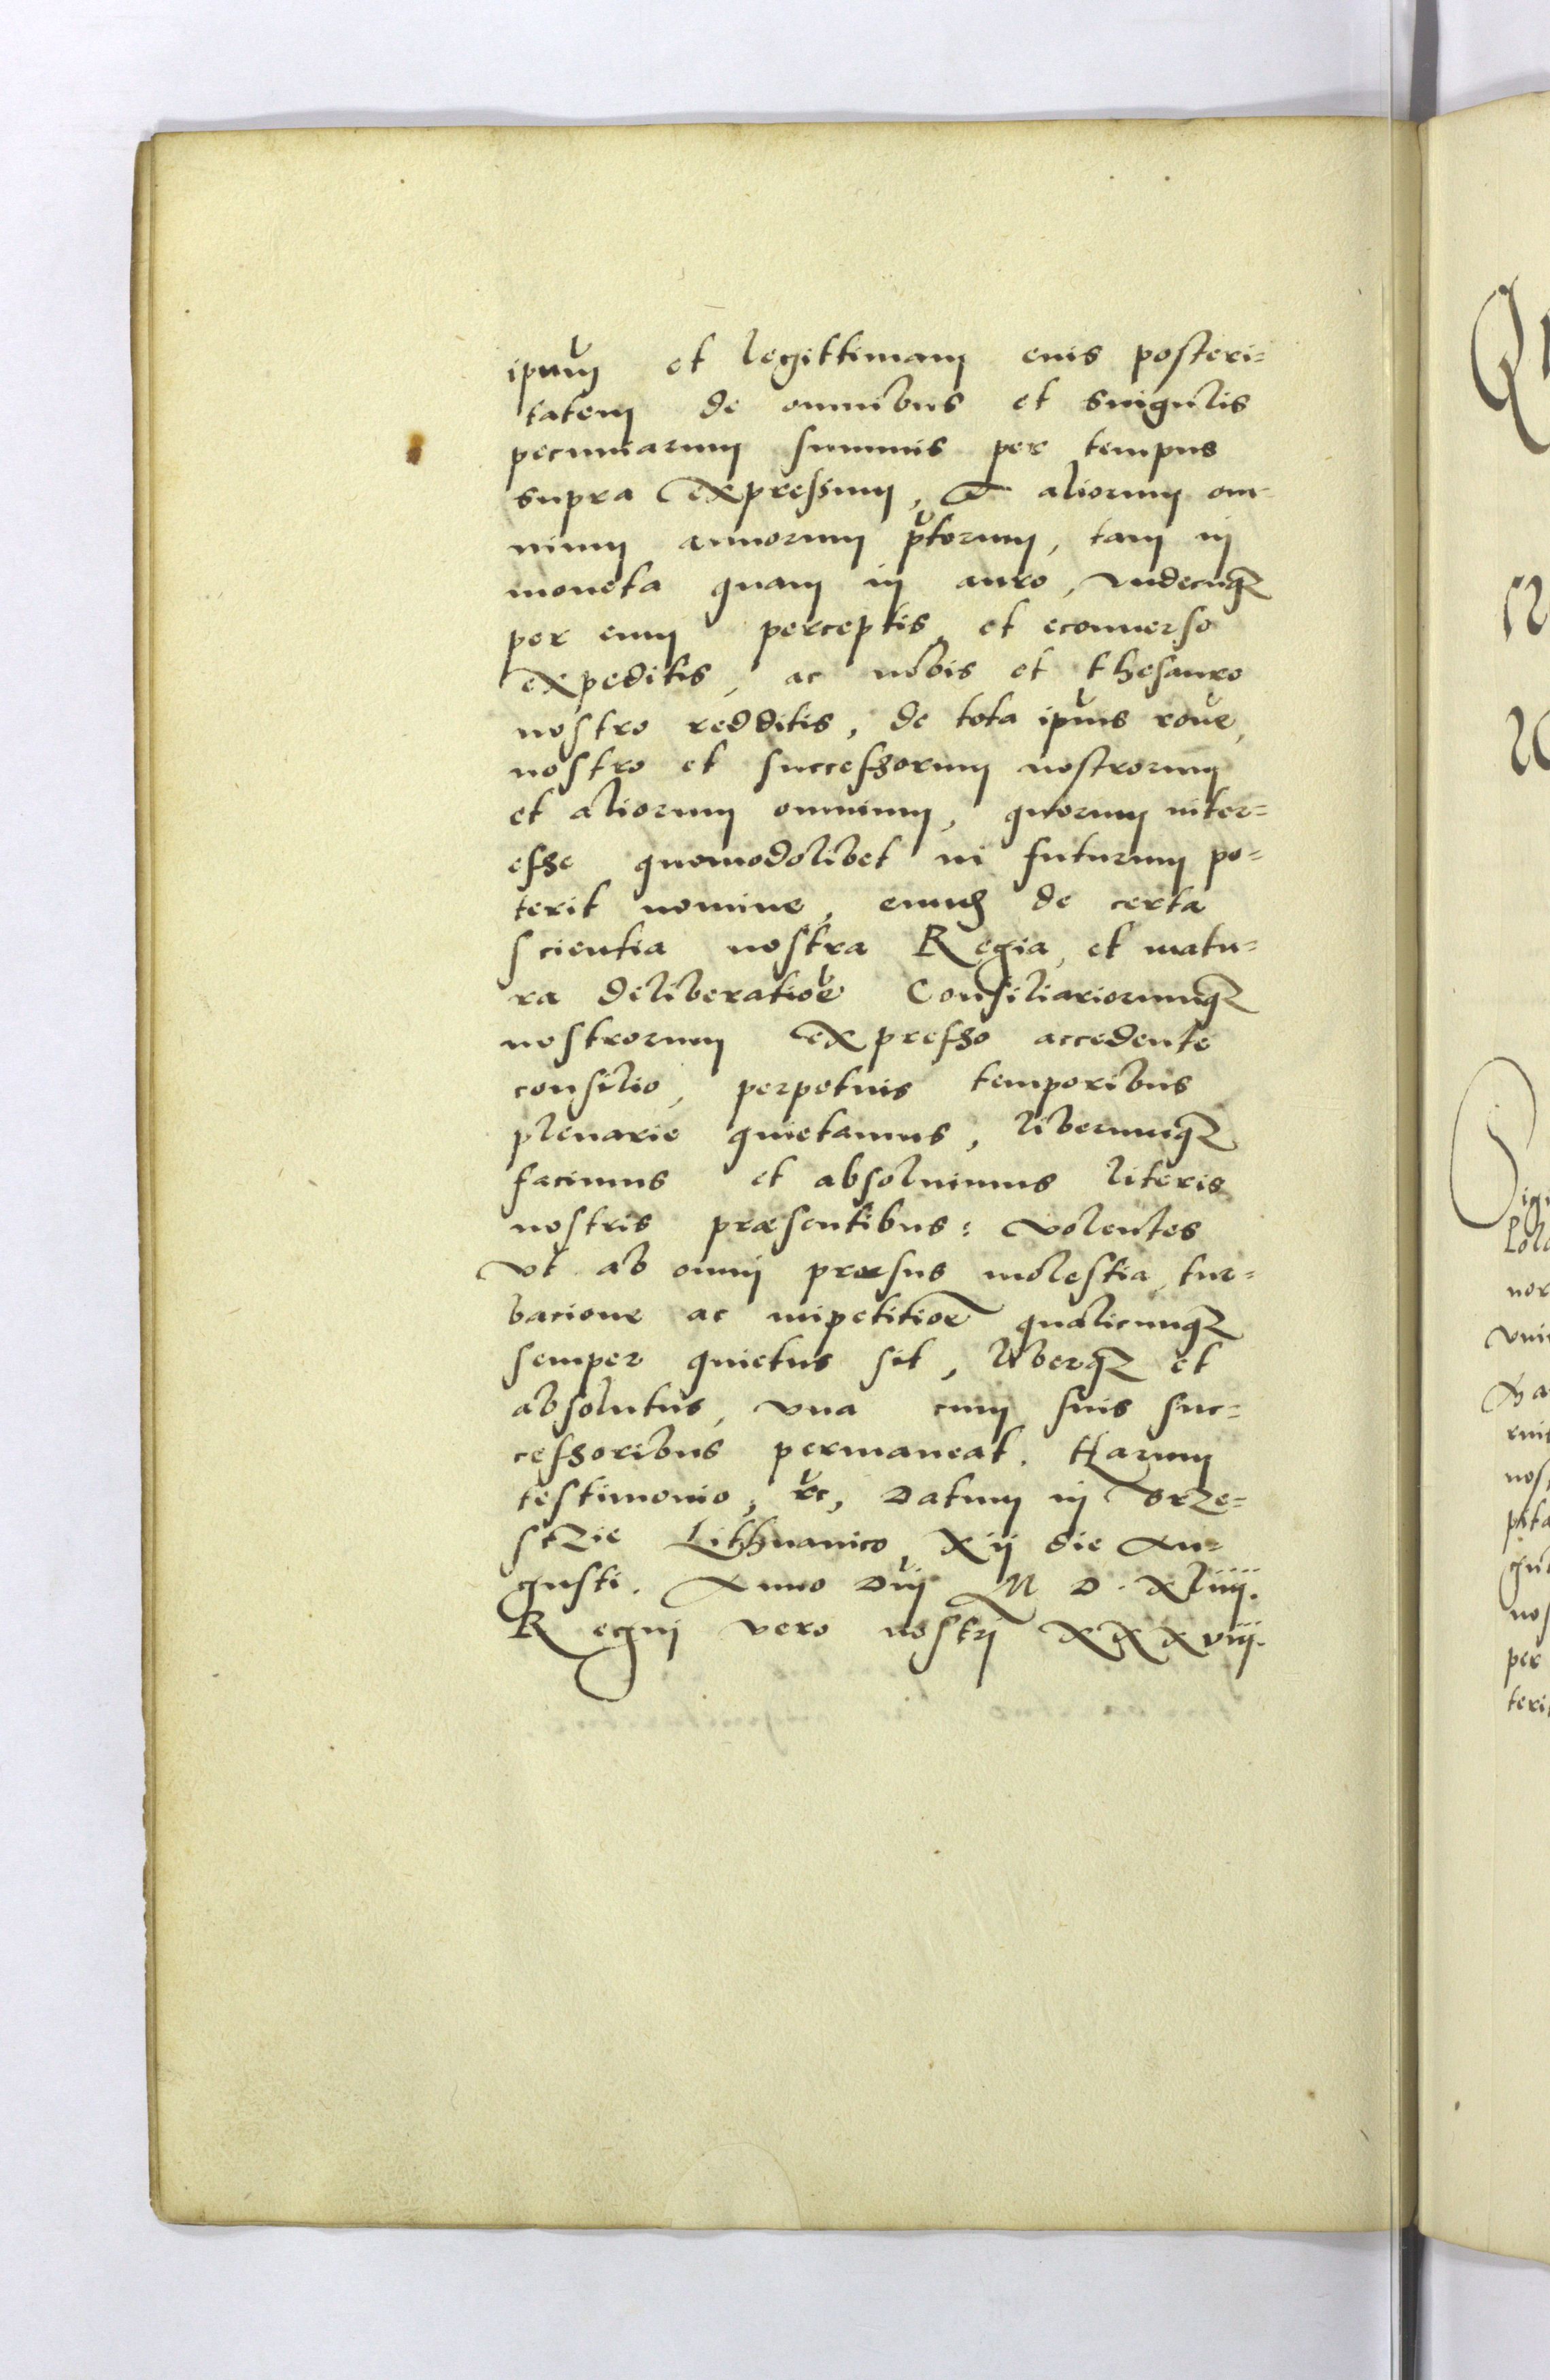 ipsum et legittimam eius posteri=
tatem de omnibus et singulis
pecuniarum summis per tempus
supra expressum, et aliorum om-
nium annorum ptorum, tam in
moneta quam in auro, vndecunq3
per eum perceptis, et econuerso
expeditis, ac nobis et thesauro
nostro redditis, de tota ipius rone,
nostro et successorum nostrorum
et aliorum omnium, quorum inter=
esse quomodolibet in futurum po=
terit nomine, eund de certa
scientia nostra Regia, et matu=
ra deliberatioe Consiliariorumq3
nostrorum expresso accedente
consilio, perpetuis temporibus
plenarie quietamus, liberumq3
facimus et absoluimus literis
nostris præsentibus: volentes
vt ab omni prorsus molestia, tur=
bacione ac inipetitioe qualicunq3
semper quietus sit, liberq3 et
absolutus, vna cum suis suc=
cessoribus permaneat. Harum
testimonio, &c, Datum in Brze=
stzie Lithuanico, xij die Au=
gusti. Anno Dni M D. xliiij.
Regni vero nostri xxxviij.